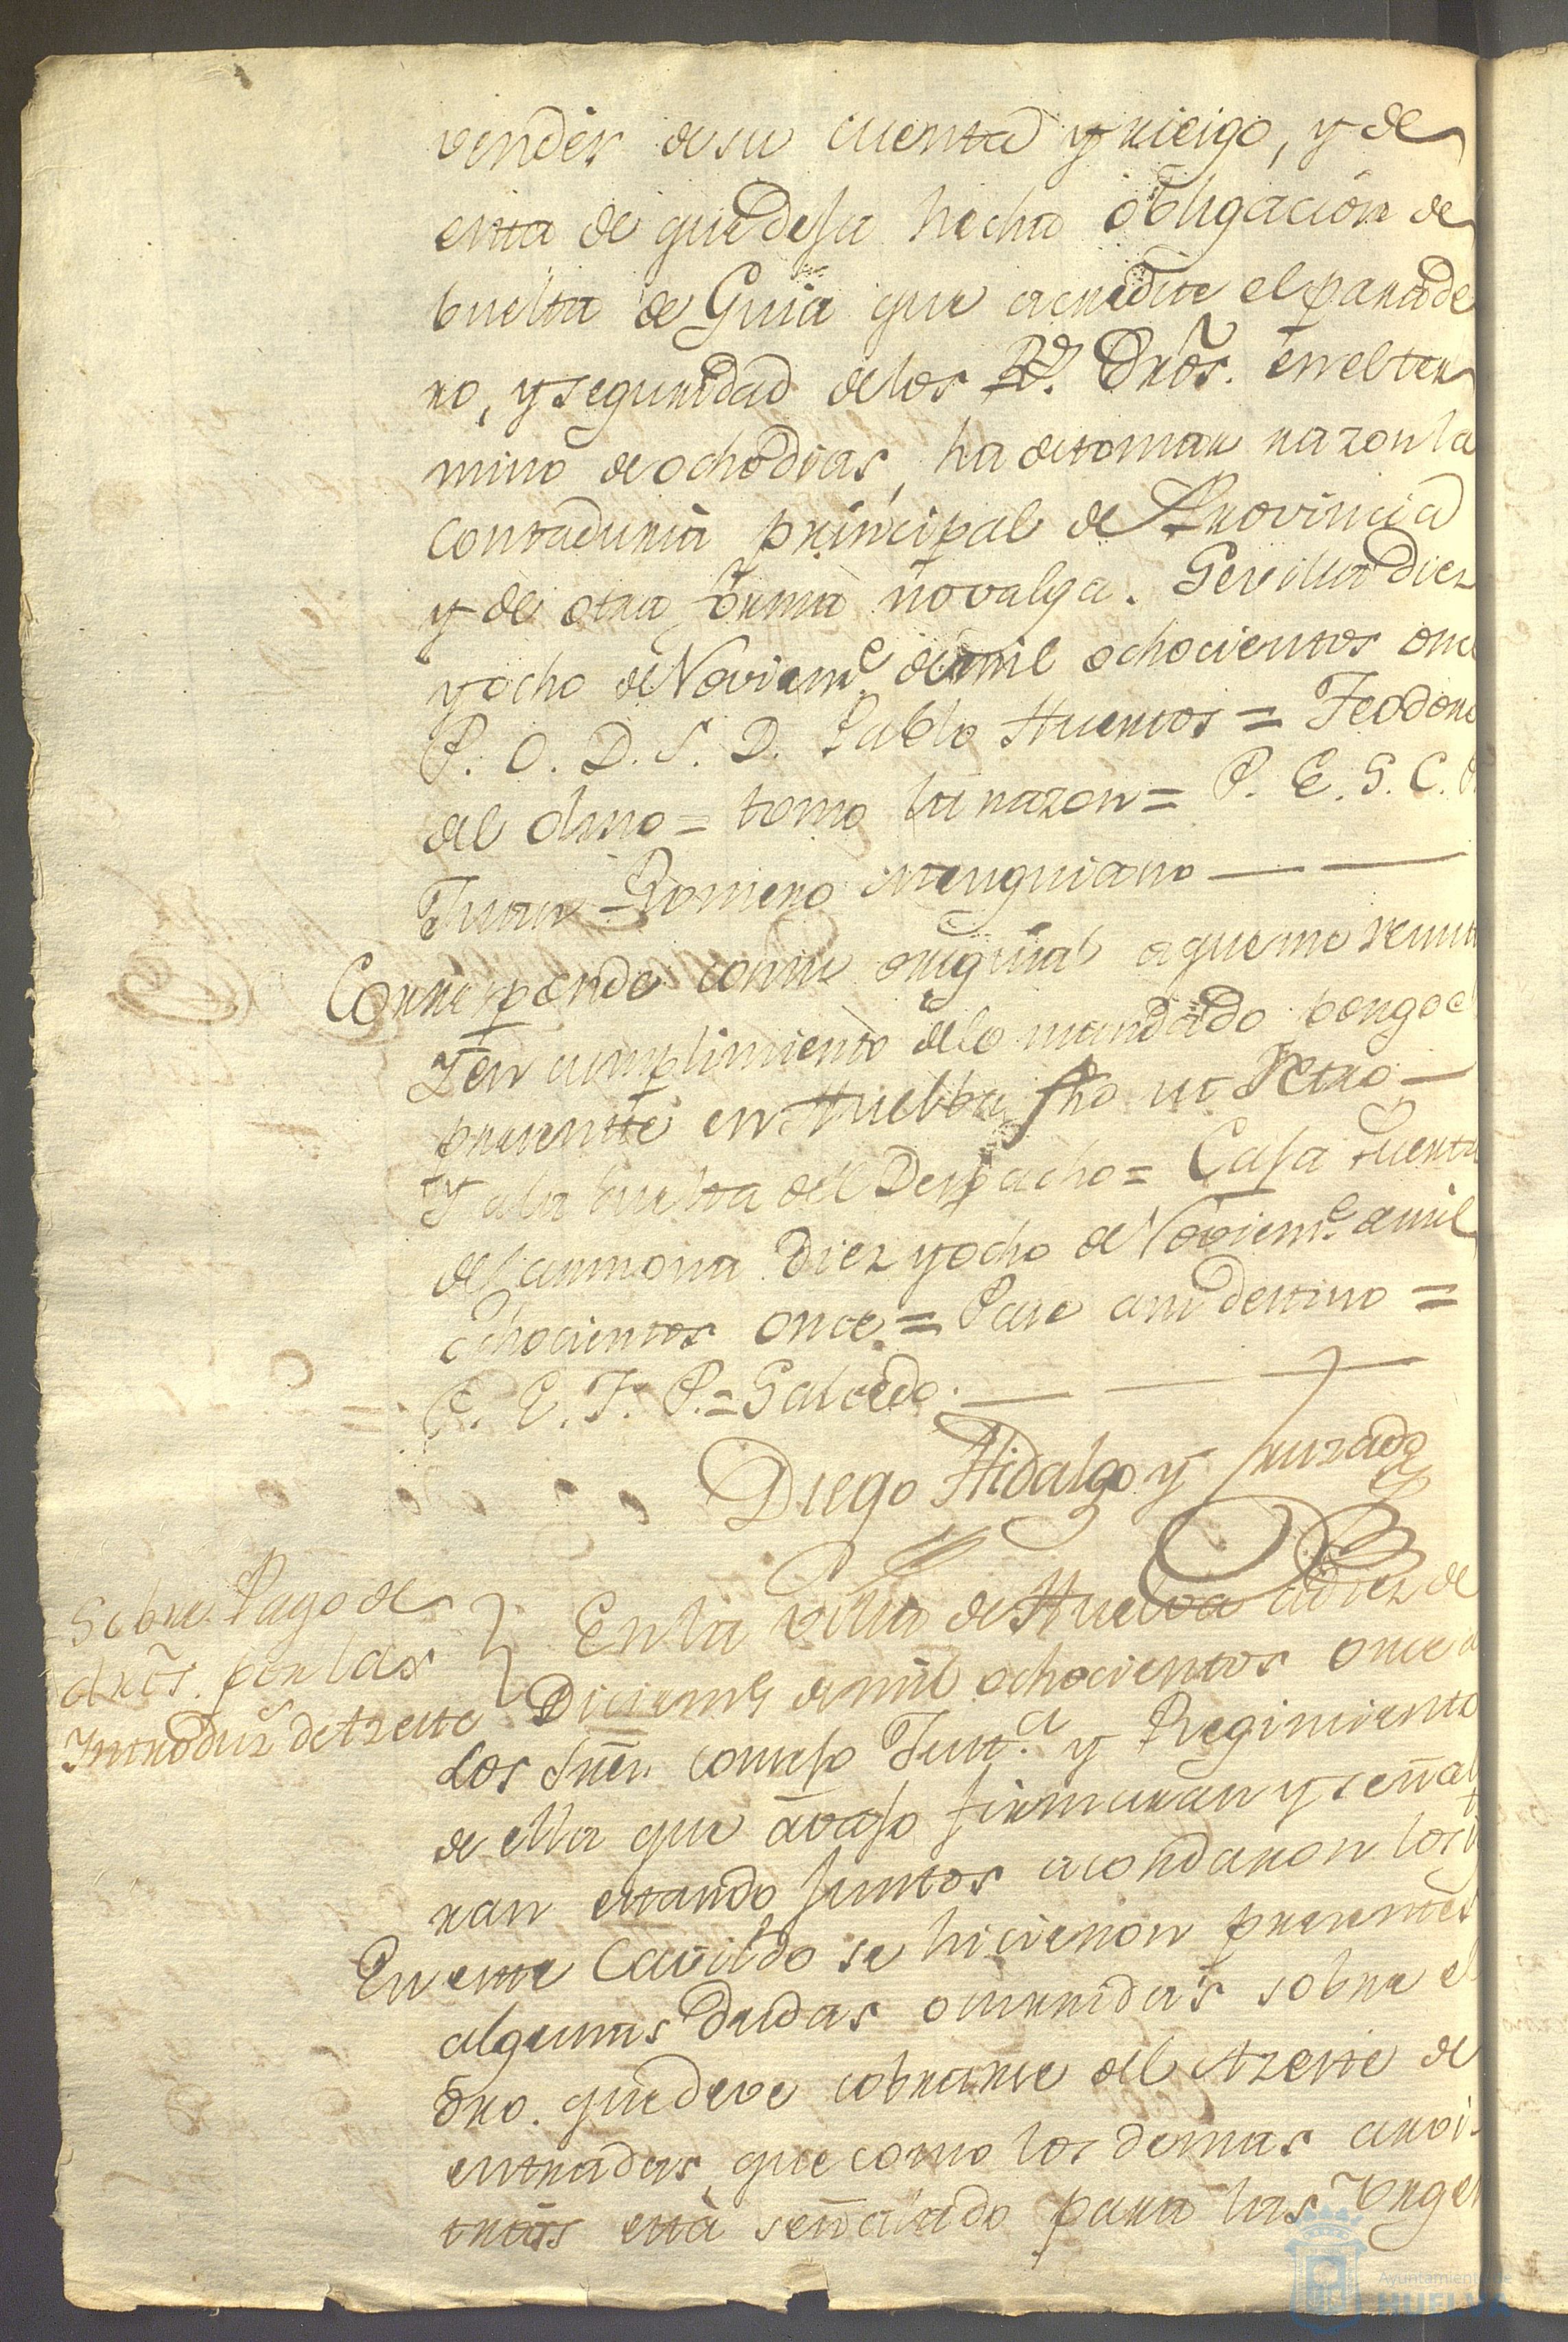 vender de su cuenta y riesgo, y de
esta de que deja hecha obligacion de
buelta de Guia que acredite el parade
ro, y seguridad de los Rs. Dros. en el ter
mino de ocho dias, ha de tomar razon la
Contaduria principal de Provincia
y de otra forma no valga. Sevilla diez
y ocho de Noviem.e de mil ochocientos once
P. O. D. S. D. Pablo Huertos = Teodoro
del Olmo = tomo la razon = P. E. S. C.
Juan Romero Menguiano
Corresponde con su original a que me remito
Y en cumplimiento de lo mandado pongo el
presente en Huelba fho ut retro
Y a la buelta del Despacho = Casa Puerta
de Carmona diez y ocho de Noviem.e de mil
ochocientos once = Pase a su destino =
P. E. J. P. = Salcedo.
Diego Hidalgo y Jurado
Sobre Pago de
dros. por las
Introduz.s de Azeite
En la villa de Huelva a diez de
Diciem.e de mil ochocientos once
los Sres. consejo Just.a y Regimiento
de ella que avajo firmaran y señala
ran estando juntos acordaron los
En este Cavildo se hicieron presentes
algunas dudas ocurridas sobre el
dro. que deve cobrarse del Azeite de
entradas, que como los demas arvi-
trios está señalado para las Urgen
Ayuntamiento de
HUELVA